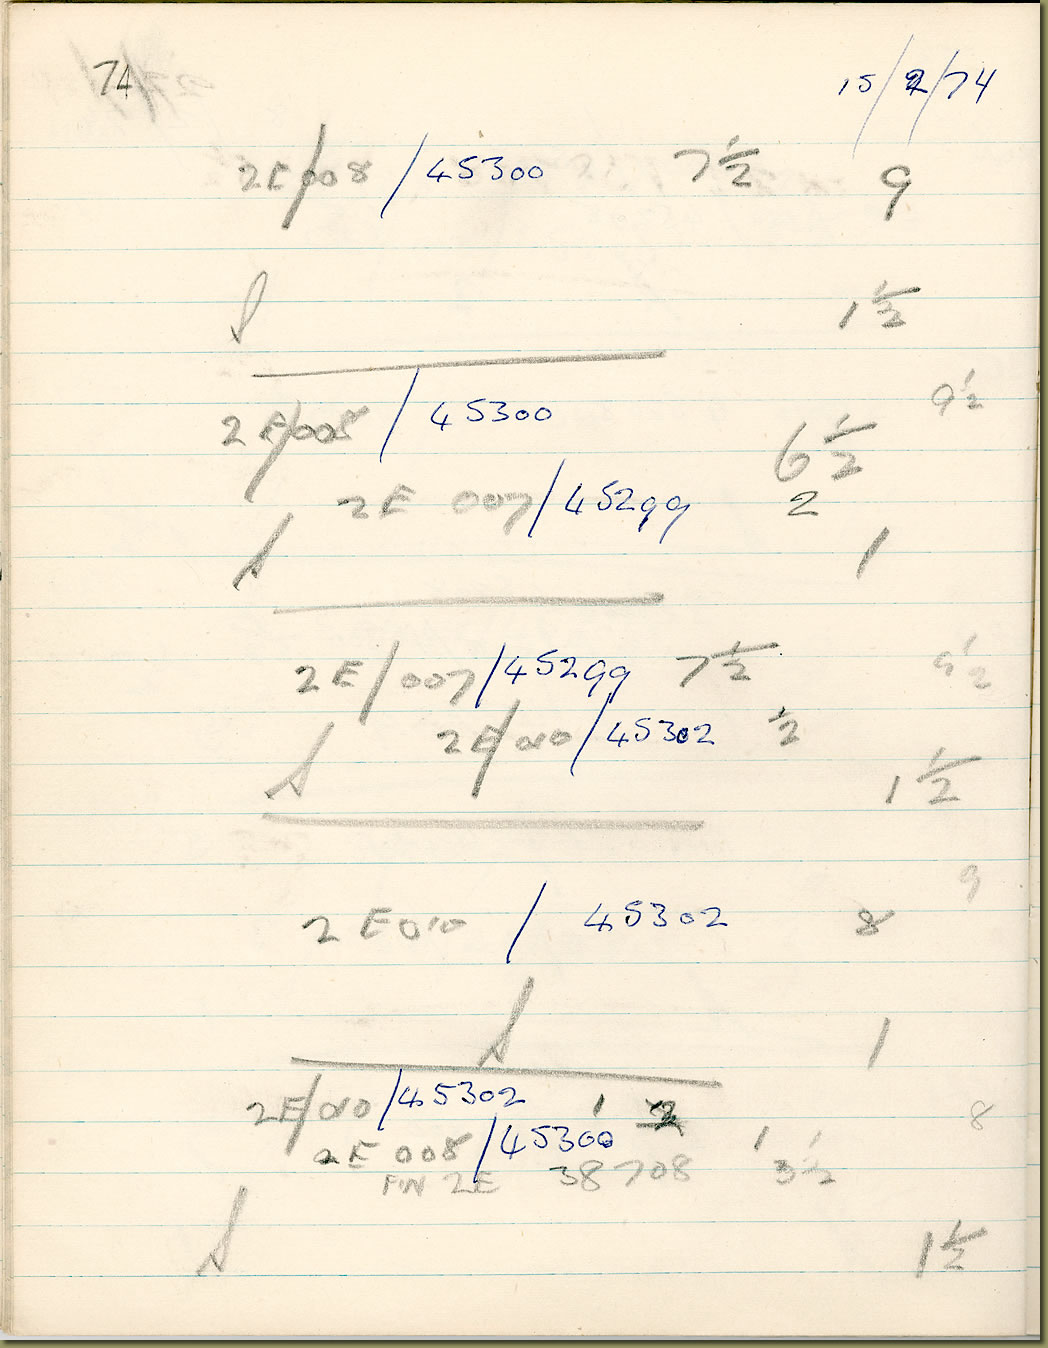 74 15/2/74
2E/008 / 45300 7½ 9
S 1½
2E/008 / 45300 9½
6½
2E 007 / 45299 2
S 1
2E/007 / 45299 7½ 9½
2E/010 / 45302 ½
S 1½
9
2E010 / 45302 8
S 1
2E/010 / 45302 1 8
2E 008 / 45300 1
FIN 2E 38708 3½
S 1½